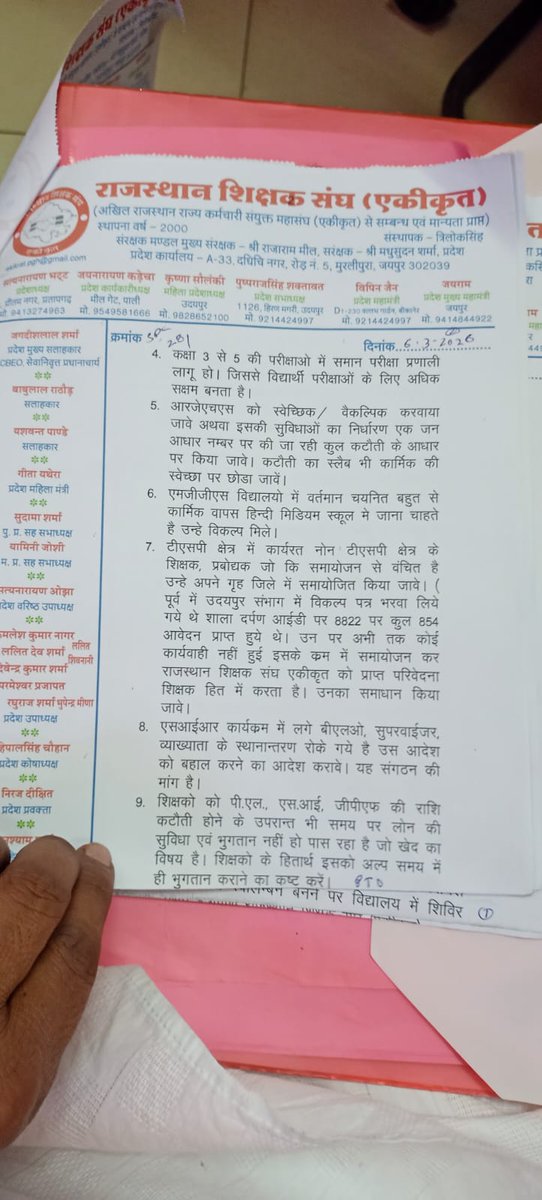 राजस्थान शिक्षक संघ (एकीकृत)
(अखिल राजस्थान राज्य कर्मचारी संयुक्त महासंघ (एकीकृत) से सम्बन्ध एवं मान्यता प्राप्त)
स्थापना वर्ष – 2000 संस्थापक – त्रिलोकसिंह
संरक्षक मण्डल मुख्य संरक्षक – श्री राजाराम मील, सरंक्षक – श्री मधुसुदन शर्मा, प्रदेश
प्रदेश कार्यालय – A-33, दधिचि नगर, रोड़ नं. 5, मुरलीपुरा, जयपुर 302039
सत्यनारायण भट्ट जयनारायण कड़ेचा कृष्णा सोलंकी पुष्पराजसिंह शक्तावत विपिन जैन जयराम
प्रदेशाध्यक्ष प्रदेश कार्यकारीध्यक्ष महिला प्रदेशाध्यक्ष प्रदेश सभाध्यक्ष प्रदेश महामंत्री प्रदेश मुख्य महामंत्री
नगर, प्रतापगढ़ मील गेट, पाली उदयपुर 1126, हिरण मगरी, उदयपुर D1-230 गार्डन, बीकानेर जयपुर
मो. 9413274963 मो. 9549581666 मो. 9828652100 मो. 9214424997 मो. 9214424997 मो. 9414644922
क्रमांक 281 दिनांक 6.3.2026
4. कक्षा 3 से 5 की परीक्षाओ में समान परीक्षा प्रणाली
लागू हो। जिससे विद्यार्थी परीक्षाओं के लिए अधिक
सक्षम बनता है।
5. आरजेएचएस को स्वेच्छिक/ वैकल्पिक करवाया
जावे अथवा इसकी सुविधाओं का निर्धारण एक जन
आधार नम्बर पर की जा रही कुल कटौती के आधार
पर किया जावे। कटौती का स्लैब भी कार्मिक की
स्वेच्छा पर छोडा जावें।
6. एमजीजीएस विद्यालयो में वर्तमान चयनित बहुत से
कार्मिक वापस हिन्दी मिडियम स्कूल मे जाना चाहते
है उन्हे विकल्प मिले।
7. टीएसपी क्षेत्र में कार्यरत नोन टीएसपी क्षेत्र के
शिक्षक, प्रबोधक जो कि समायोजन से वंचित है
उन्हे अपने गृह जिले में समायोजित किया जावे। (
पूर्व में उदयपुर संभाग में विकल्प पत्र भरवा लिये
गये थे शाला दर्पण आईडी पर 8822 पर कुल 854
आवेदन प्राप्त हुये थे। उन पर अभी तक कोई
कार्यवाही नहीं हुई इसके क्रम में समायोजन कर
राजस्थान शिक्षक संघ एकीकृत को प्राप्त परिवेदना
शिक्षक हित में करता है। उनका समाधान किया
जावे।
8. एसआईआर कार्यक्रम में लगे बीएलओ, सुपरवाईजर,
व्याख्याता के स्थानान्तरण रोके गये है उस आदेश
को बहाल करने का आदेश करावे। यह संगठन की
मांग है।
9. शिक्षको को पी.एल., एस.आई, जीपीएफ की राशि
कटौती होने के उपरान्त भी समय पर लोन की
सुविधा एवं भुगतान नहीं हो पास रहा है जो खेद का
विषय है। शिक्षको के हितार्थ इसको अल्प समय में
ही भुगतान कराने का कष्ट करें। PTO
बनने पर विद्यालय में शिविर 1
जगदीशलाल शर्मा
प्रदेश मुख्य सलाहकार
CBEO, सेवानिवृत्त प्रधानाचार्य
बाबुलाल राठौड़
सलाहकार
यशवन्त पाण्डे
सलाहकार
गीता यथेरा
प्रदेश महिला मंत्री
सुदामा शर्मा
पु. प्र. सह सभाध्यक्ष
यामिनी जोशी
म. प्र. सह सभाध्यक्ष
सत्यनारायण ओझा
प्रदेश वरिष्ठ उपाध्यक्ष
कमलेश कुमार नागर
ललित देव शर्मा ललित शिवरानी
देवेन्द्र कुमार शर्मा
परमेश्वर प्रजापत
रघुराज शर्मा भुपेन्द्र मीणा
प्रदेश उपाध्यक्ष
प्रदेश कोषाध्यक्ष
निरज दीक्षित
प्रदेश प्रवक्ता